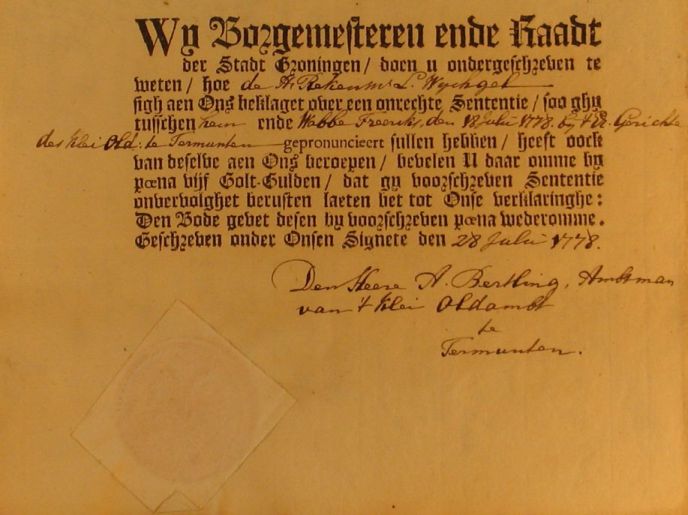 Wy Borgemesteren ende Raadt
der Stadt Groningen / doen u ondergeschreven te
weten / hoe de H. Rekenmr. L. Wychgel
sigh aen Ons beklaget over een onrechte Sententie / soo ghy
tusschen hem ende Wabbe Freerks, den 18 Juli 1778. by 't Gerichte
des klei Old. te Termunten gepronuncieert sullen hebben / heeft oock
van deselve aen Ons beroepen / bevelen U daar omme by
pœna vijf Golt-Gulden / dat gy voorschreven Sententie
onvervolghet berusten laeten bet tot Onse verklaringhe:
Den Bode gevet desen by voorschreven pœna wederomme.
Geschreven onder Onsen Signete den 28 Juli 1778.
Den Heere A. Bertling, Amtman
van 't klei Oldambt
te
Termunten.